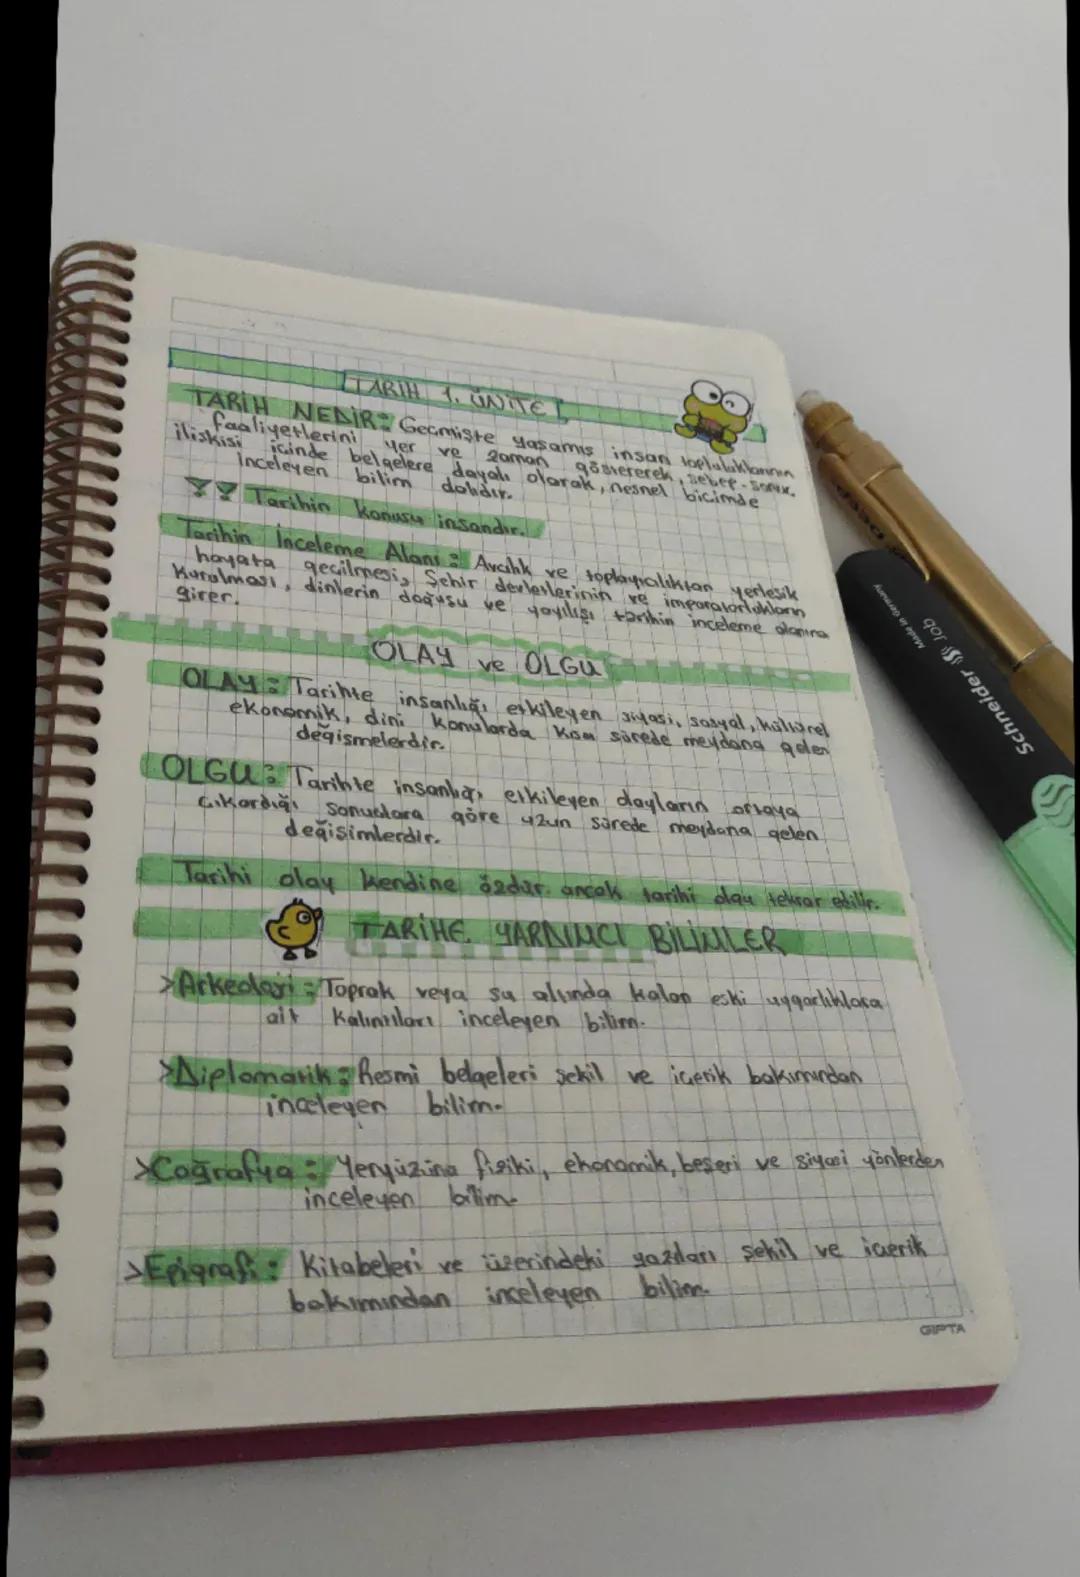 TARİH 1. ÜNİTE
TARİH NEDİR: Geçmişte yaşamış insan topluluklarının
faaliyetlerini yer ve zaman göstererek, sebep-sonuç
ilişkisi içinde belgelere dayalı olarak, nesnel biçimde
inceleyen bilim dalıdır.
Tarihin konusu insandır.
Tarihin İnceleme Alanı: Avcılık ve toplayıcılıktan yerleşik
hayata geçilmesi, Şehir devletlerinin ve imparatorlukların
Kurulması, dinlerin doğuşu ve yayılışı tarihin inceleme alanına
girer.
OLAY ve OLGU
OLAY: Tarihte insanlığı etkileyen siyasi, sosyal, kültürel
ekonomik, dini konularda kısa sürede meydana gelen
değişmelerdir.
OLGU: Tarihte insanlığı etkileyen olayların ortaya
çıkardığı sonuçlara göre uzun sürede meydana gelen
değişimlerdir.
Tarihi olay kendine özdür. ancak tarihi olay tekrar edilir.
TARİHE YARDIMCI BİLİMLER
>Arkeoloji: Toprak veya su altında kalan eski uygarlıklara
ait kalıntıları inceleyen bilim.
>Diplomatik: Resmi belgeleri şekil ve içerik bakımından
inceleyen bilim.
>Coğrafya: Yeryüzünü fiziki, ekonomik, beşeri ve siyasi yönlerden
inceleyen bilim.
>Epigrafi: Kitabeleri ve üzerindeki yazıları şekil ve içerik
bakımından inceleyen bilim.
GIPTA
Schneider Job
Made in Germany